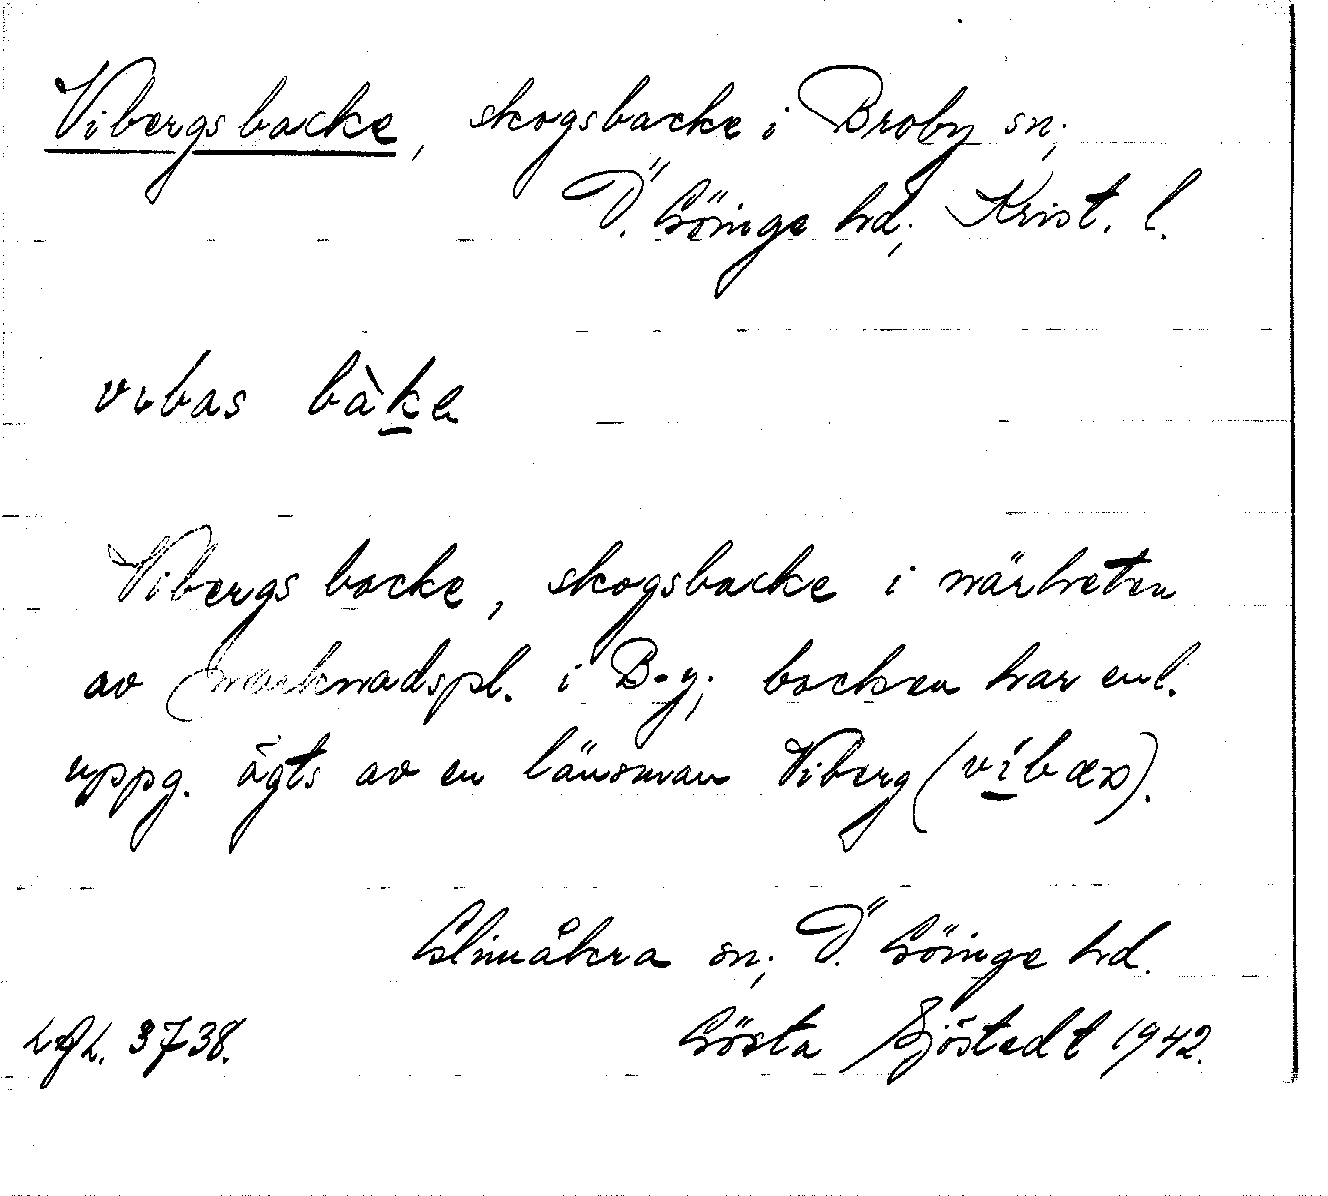 Vibergsbacke, skogsbacke i Broby sn;
Ö. Göinge hd; Krist. l.
vibas bàke
Vibergs backe, skogsbacke i närheten
av marknadspl. i B-y; backen har enl.
uppg. ägts av en länsman Viberg (víbær).
Glimåkra sn; Ö. Göinge hd.
3738. Gösta Sjöstedt 1942.